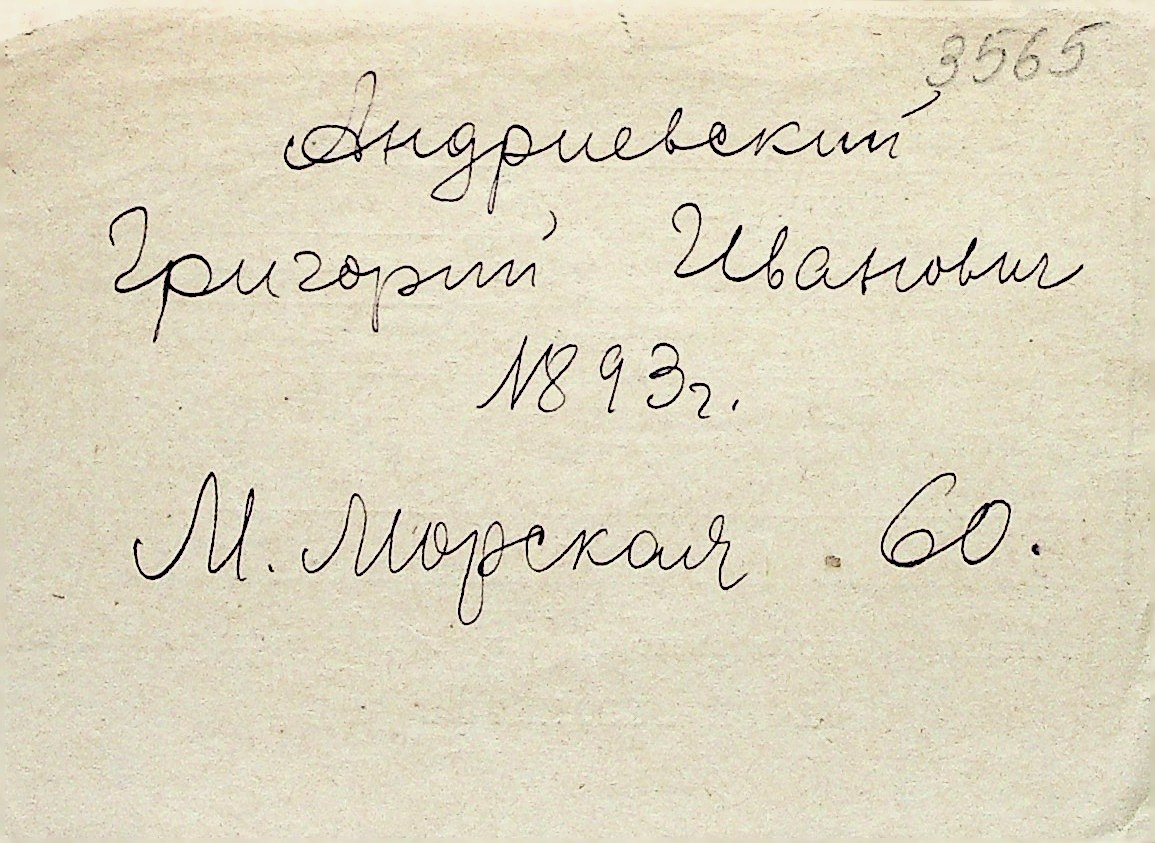 3565
Андриевский
Григорий Иванович
1893г.
М. Морская . 60.